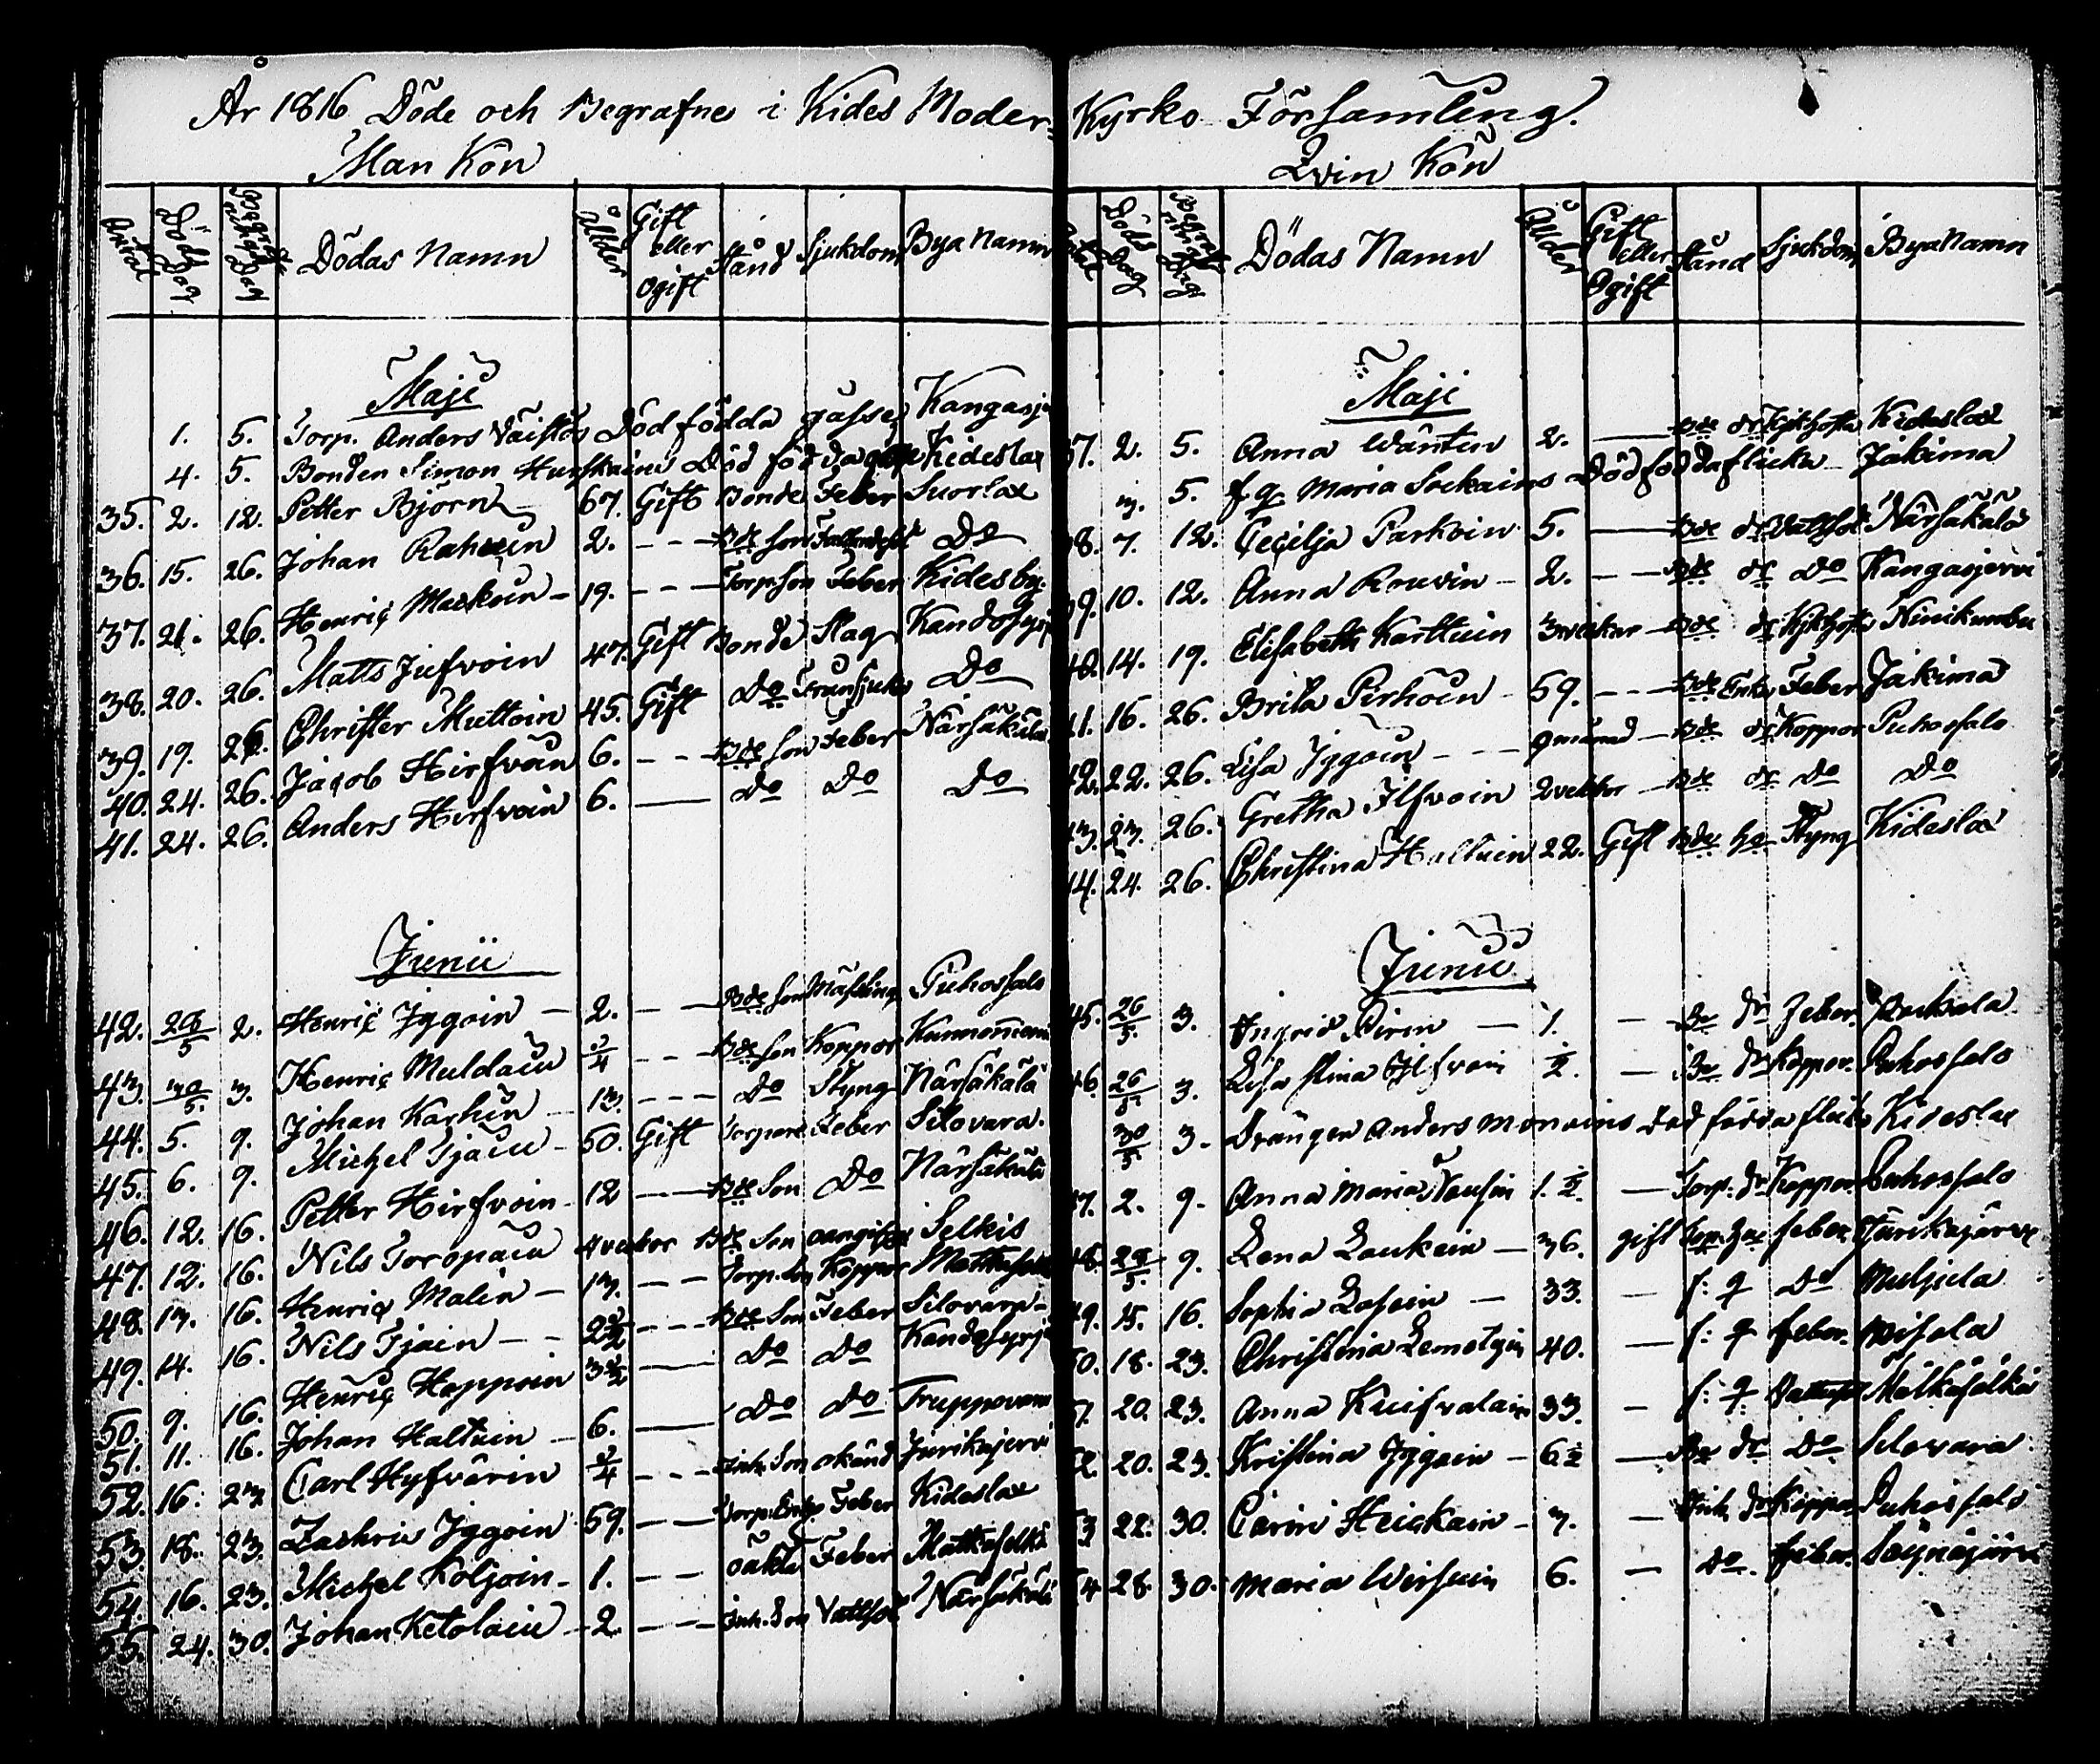 År 1816 Döde och Begrafne i Kides Moder-
Man Kön
Antal Död Dag Begrafnings Dag Dödas Namn Ålder Gift eller Ogift Stånd Sjukdom Bya Namn
Maji
1. 5. Torp. Anders Väistös Död födda gosse Kangasj
4. 5. Bonden Simon Hurskains Död född gosse Kideslax
35. 2. 12. Petter Björn 67. Gift Bonde Feber Suorlax
36. 15. 26. Johan Rahuin 2. - - - Bde son Do
37. 21. 26. Henric Maskuin - 19. - - - Torp. son Feber Kidesby
38. 20. 26. Matts Jufvoin 47. Gift Bonde Slag Kandosyrj
39. 19. 26. Christer Muttoin 45. Gift Do Do
40. 24. 26. Jacob Hirfvoin 6. - - - Bde son Feber Närsäkälä
41. 24. 26. Anders Hirfvoin 6. — Do Do Do
Junii
42. 28/5 2. Henric Iggoin — 2. - — Bde son Mässling Puhossalo
43. 30/5. 3. Henric Muldain 3/4 - - - Bde son Koppor
44. 5. 9. Johan Karhin 13. - - - Do Styng Närsäkälä
45. 6. 9. Michel Tjäin - 50. Gift Torpare Feber Silovara.
46. 12. 16. Petter Hirfvoin 12 - — Bde Son Do Närsäkälä
47. 12. 16. Nils Toropain 4 veckor Bde Son oangifven Selkis
48. 13. 16. Henric Malin — 13. - — Torp. Son Koppor Matkaselkä
49. 14. 16. Nils Tjäin - - 2 1/2 - - - Bde Son Feber Silovara -
50. 9. 16. Henric Hoppoin 3 1/2 — Do Do Kandosyrjä
51. 11. 16. Johan Haltuin 6. — Do Do Truppovara
52. 16. 23 Carl Hyfvärin 3/4 - - - Inh. Son okänd Jurikajervi
53. 18. 23. Zachris Iggoin 59. - — Torp. Enkl. Feber Kideslax
54. 16. 23. Michel Koljoin - 1. - — oäkta Feber Matkaselkä
55. 24. 30. Johan Ketolain - 2. - — Inh. Son Vattsot Närsäkälä
Kyrko Församling.
Qvin Kön
Antal Död Dag Begrafnings Dag Dödas Namn Ålder Gift eller Ogift Stånd Sjukdom Bya Namn
Maji
37. 2. 5. Anna Wäntin 2. — Bde dr Kikhosta Kideslax
3. 5. f. q. Maria Sockains Död född a flicka Jakima
38. 7. 12. Cecilja Parkoin 5. — Bde dr Vattsot Närsäkälä
39. 10. 12. Anna Rouvin - 2. - — Bde dr Do Kangasjervi
40. 14. 19. Elisabeth Karttuin 3 veckor Bde dr Kikhosta Ninikumbu
41. 16. 26. Brita Pirhoin - 59. - - - Bde Enka Feber Jakima
42. 22. 26. Lisa Iggoin - - - 9 månad - Bde dr Koppor Puhossalo
43. 23. 26. Gretha Ilfvoin 2 veckor - Bde dr Do Do
44. 24. 26. Christina Haltuin 22. Gift Bde hu Styng Kideslax
Junii
45. 26/5. 3. Ingrid Pirin — 1. — Bo dr Feber.
46. 26/5 3. Lisa Stina Ilfvoin 1/2. — Bo dr Koppor. Puhossalo
30/5. 3. Drängen Anders Monoins död födda flicka Kideslax
47. 2. 9. Anna Maria Vänsin 1. 1/2. — Torp. dr Koppor Puhossalo
48. 28/5. 9. Lena Laukain — 36. gift Torp. hu feber Jurikajärvi
49. 15. 16. Sophia Lasoin — 33. — f: q Do Muljula
50. 18. 23. Christina Lemetyin 40. — f: q feber. Misola
51. 20. 23. Anna Kuifvalain 33. — f: q Vattusot Matkaselkä
52. 20. 23. Kristina Iggoin - 6 1/2 — Bo dr Do Silovara
53 22. 30. Carin Heickain - 3. — Inh. dr Koppor Puhossalo
54. 28. 30. Maria Wirsuin 6. — Do. feber. Säynäjärvi